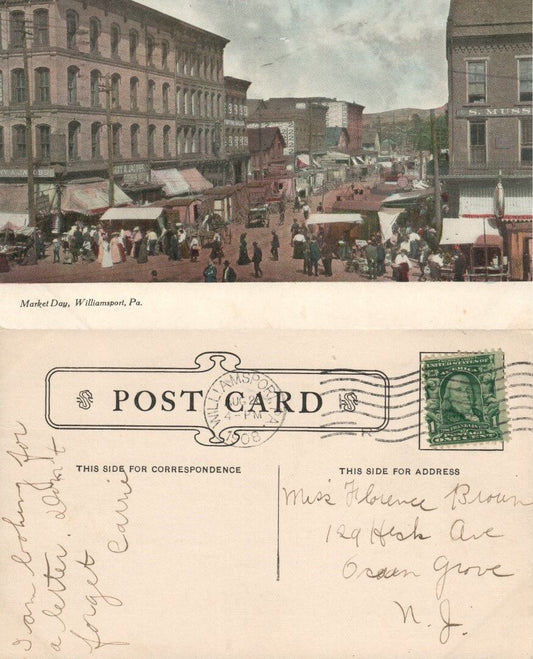 S. MUSS
Market Day, Williamsport, Pa.
POST CARD
WILLIAMSPORT, PA.
4-PM
1908
UNITED STATES OF AMERICA
1
ONE CENT
THIS SIDE FOR CORRESPONDENCE
THIS SIDE FOR ADDRESS
I am looking for
a letter. Don't
forget
Carrie
Miss Florence Brown
129 Heck Ave
Ocean Grove
N. J.